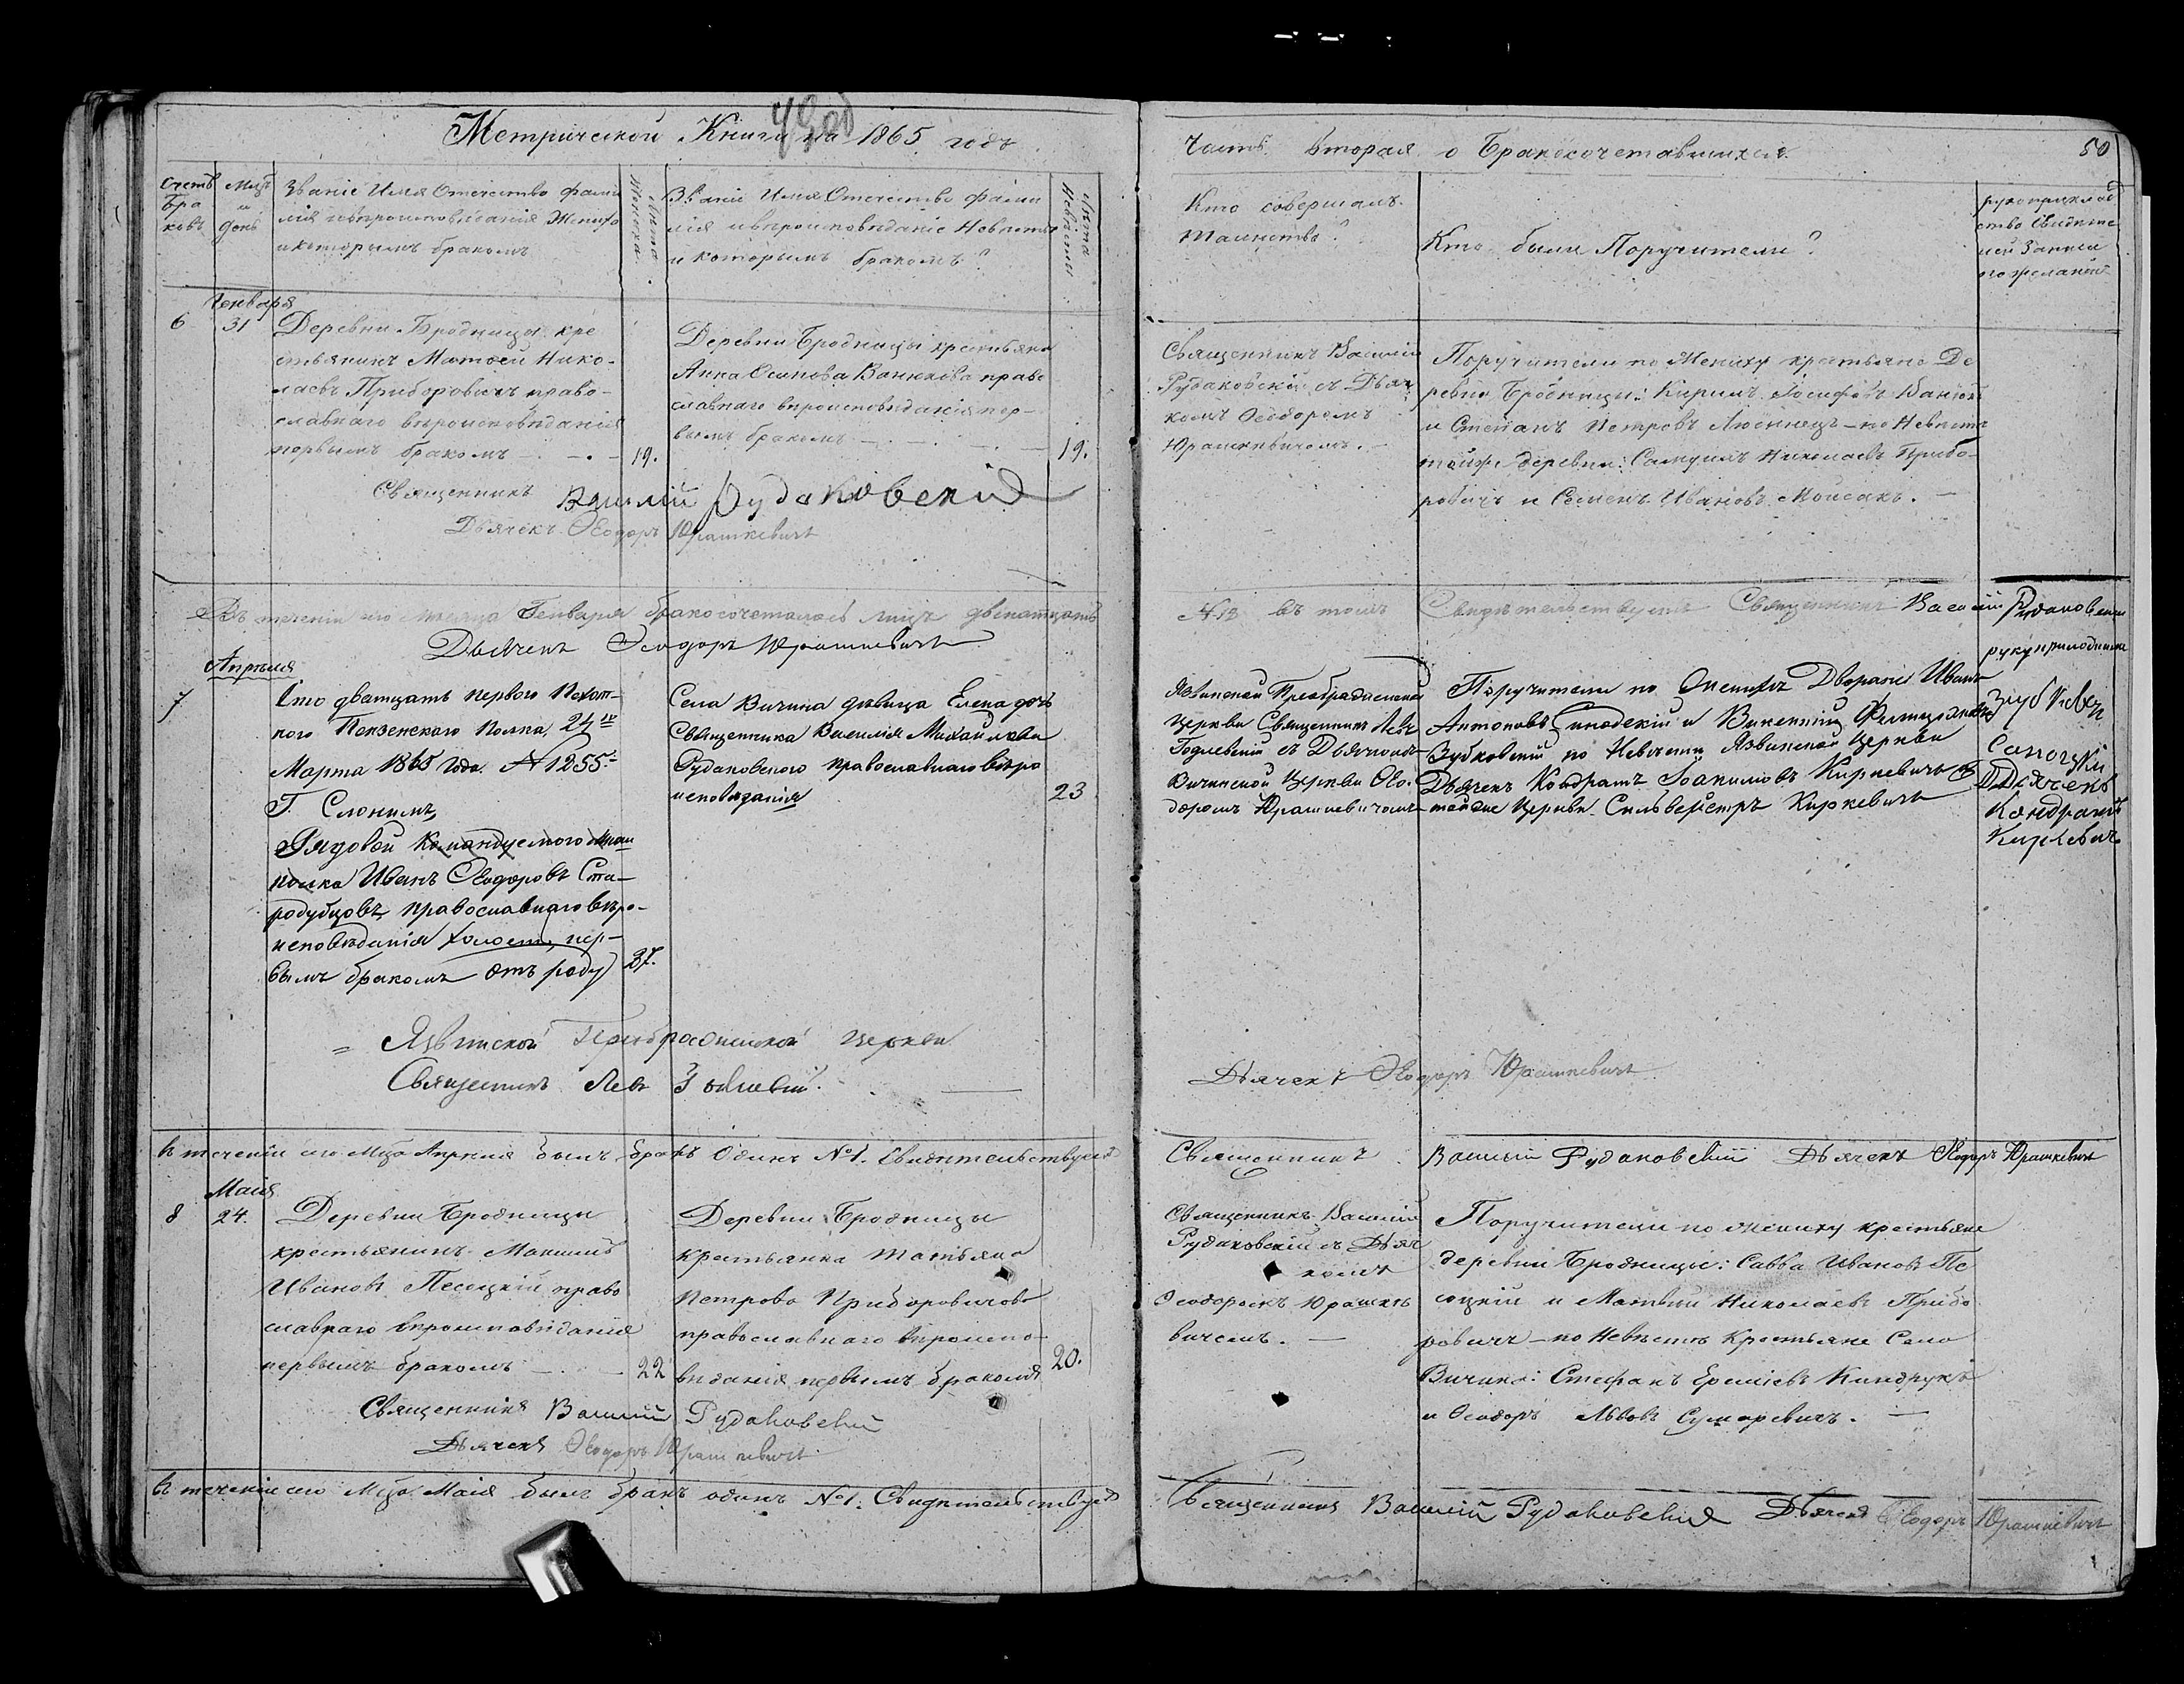 Метрической Книги на 1865 годъ
Часть вторая о Бракосочетавшихся.
50
Счетъ
бра
ковъ
Мцъ
и
день
Званіе Имя Отечество фами
лія и вѣроисповѣданія Жениха
и которымъ бракомъ
Лѣта
Жениха
Званіе Имя Отечество фами
лія и вѣроисповѣданіе Невѣсты
и которымъ бракомъ?
Лѣта
Невѣсты
Кто совершалъ
таинство?
Кто были Поручители?
рукоприклад
ство Свидѣте
лей Записи
по желанію
Генваря
6
31
Деревни Бродницы кре
стьянинъ Матѳей Нико-
лаевъ Приборовичъ право-
славнаго вѣроисповѣданія
первымъ бракомъ
19.
Деревни Бродницы крестьянка
Анна Осипова Ванюкова право
славнаго вѣроисповѣданія пер-
вымъ бракомъ
19.
Священникъ Василій
Рудаковскій съ Дьяч
комъ Ѳеодоромъ
Юрашкевичомъ.
Поручители по Жениху крестьяне Де
ревни Бродницы: Кирилъ Іосифовъ
и Степанъ Петровъ по Невѣстѣ
тойже деревни: Самуилъ Николаевъ Прибо-
ровичъ и Семенъ Ивановъ Мойсакъ.
Священникъ Василій Рудаковскій
Дьячекъ Ѳеодоръ Юрашкевичъ
Въ теченіи сего месяца Генваря бракосочеталось лицъ двенатцать
№ 12 въ томъ Свидѣтельствуетъ Священникъ Василій Рудаковскій
Дьячекъ Ѳеодоръ Юрашкевичъ
Апрѣля
7
Сто дватцать перваго Пехот-
наго Пензенскаго Полка 24го
Марта 1865 года. № 1255.
Г. Слонимъ,
Рядовой командуемого мною
полка Иванъ Ѳеодоровъ Ста-
родубцовъ, православнаго вѣро-
исповѣданія холостъ, пер-
вымъ бракомъ отъ роду
37.
Села Вичина дѣвица Елена дочь
Священника Василія Михайлова
Рудаковскаго православнаго вѣро
исповѣданія
23
Язвинской Преображенской
церкви Священникъ Левъ
Годлевскій съ Дьячкомъ
Вичинской Церкви Ѳео-
доромъ Юрашкевичомъ
Поручители по Женихѣ Дворяне Иванъ
Антоновъ и Викентій
Зубковскій по Невѣстѣ Язвинской Церкви
Дьячекъ Кондратъ Іоакимовъ Киркевичъ
тойже Церкви Сильверстръ Киркевичъ
Дьячекъ
Кондратъ
Киркевичъ
Язвинской Преображенской церкви
Священникъ Левъ Годлевскій.
Дьячекъ Ѳеодоръ Юрашкевичъ
Въ теченіи сего Мца Апрѣля былъ бракъ одинъ №1. Свидѣтельствуетъ
Священникъ Василій Рудаковскій Дьячекъ Ѳеодоръ Юрашкевичъ
Маія
8
24.
Деревни Бродницы
крестьянинъ Максимъ
Ивановъ Песецкій право
славнаго вѣроисповѣданія
первымъ бракомъ
22
Деревни Бродницы
крестьянка Татьяна
Петрова Приборовичова
православнаго вѣроиспо-
вѣданія первымъ бракомъ
20.
Священникъ Василій
Рудаковскій съ Дьяч
комъ
Ѳеодоромъ Юрашке
вичемъ.
Поручители по жениху крестьяне
деревни Бродницы: Савва Ивановъ Пе
сецкій и Матвѣй Николаевъ Прибо
ровичъ по Невѣстѣ Крестьяне Села
Вичина: Стефанъ Еремѣевъ Киндрукъ
и Ѳеодоръ Львовъ Сумаревичъ.
Священникъ Василій Рудаковскій
Дьячекъ Ѳеодоръ Юрашкевичъ
Въ теченіи сего Мца Маія былъ бракъ одинъ №1. Свидѣтельствуетъ
Священникъ Василій Рудаковскій Дьячекъ Ѳеодоръ Юрашкевичъ